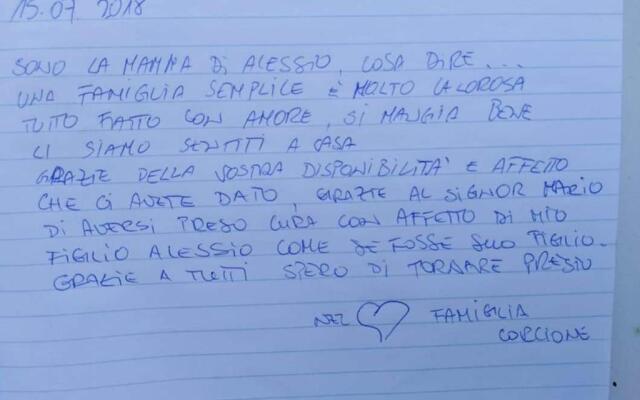 15.07 2018
SONO LA MAMMA DI ALESSIO, COSA DIRE....
UNA FAMIGLIA SEMPLICE E MOLTO CALOROSA
TUTTO FATTO CON AMORE, SI MANGIA BENE
CI SIAMO SENTITI A CASA
GRAZIE DELLA VOSTRA DISPONIBILITA' E AFFETTO
CHE CI AVETE DATO, GRAZIE AL SIGNOR MARIO
DI AVERSI PRESO CURA CON AFFETTO DI MIO
FIGLIO ALESSIO COME SE FOSSE SUO FIGLIO.
GRAZIE A TUTTI SPERO DI TORNARE PRESTO
NEL FAMIGLIA
CORCIONE